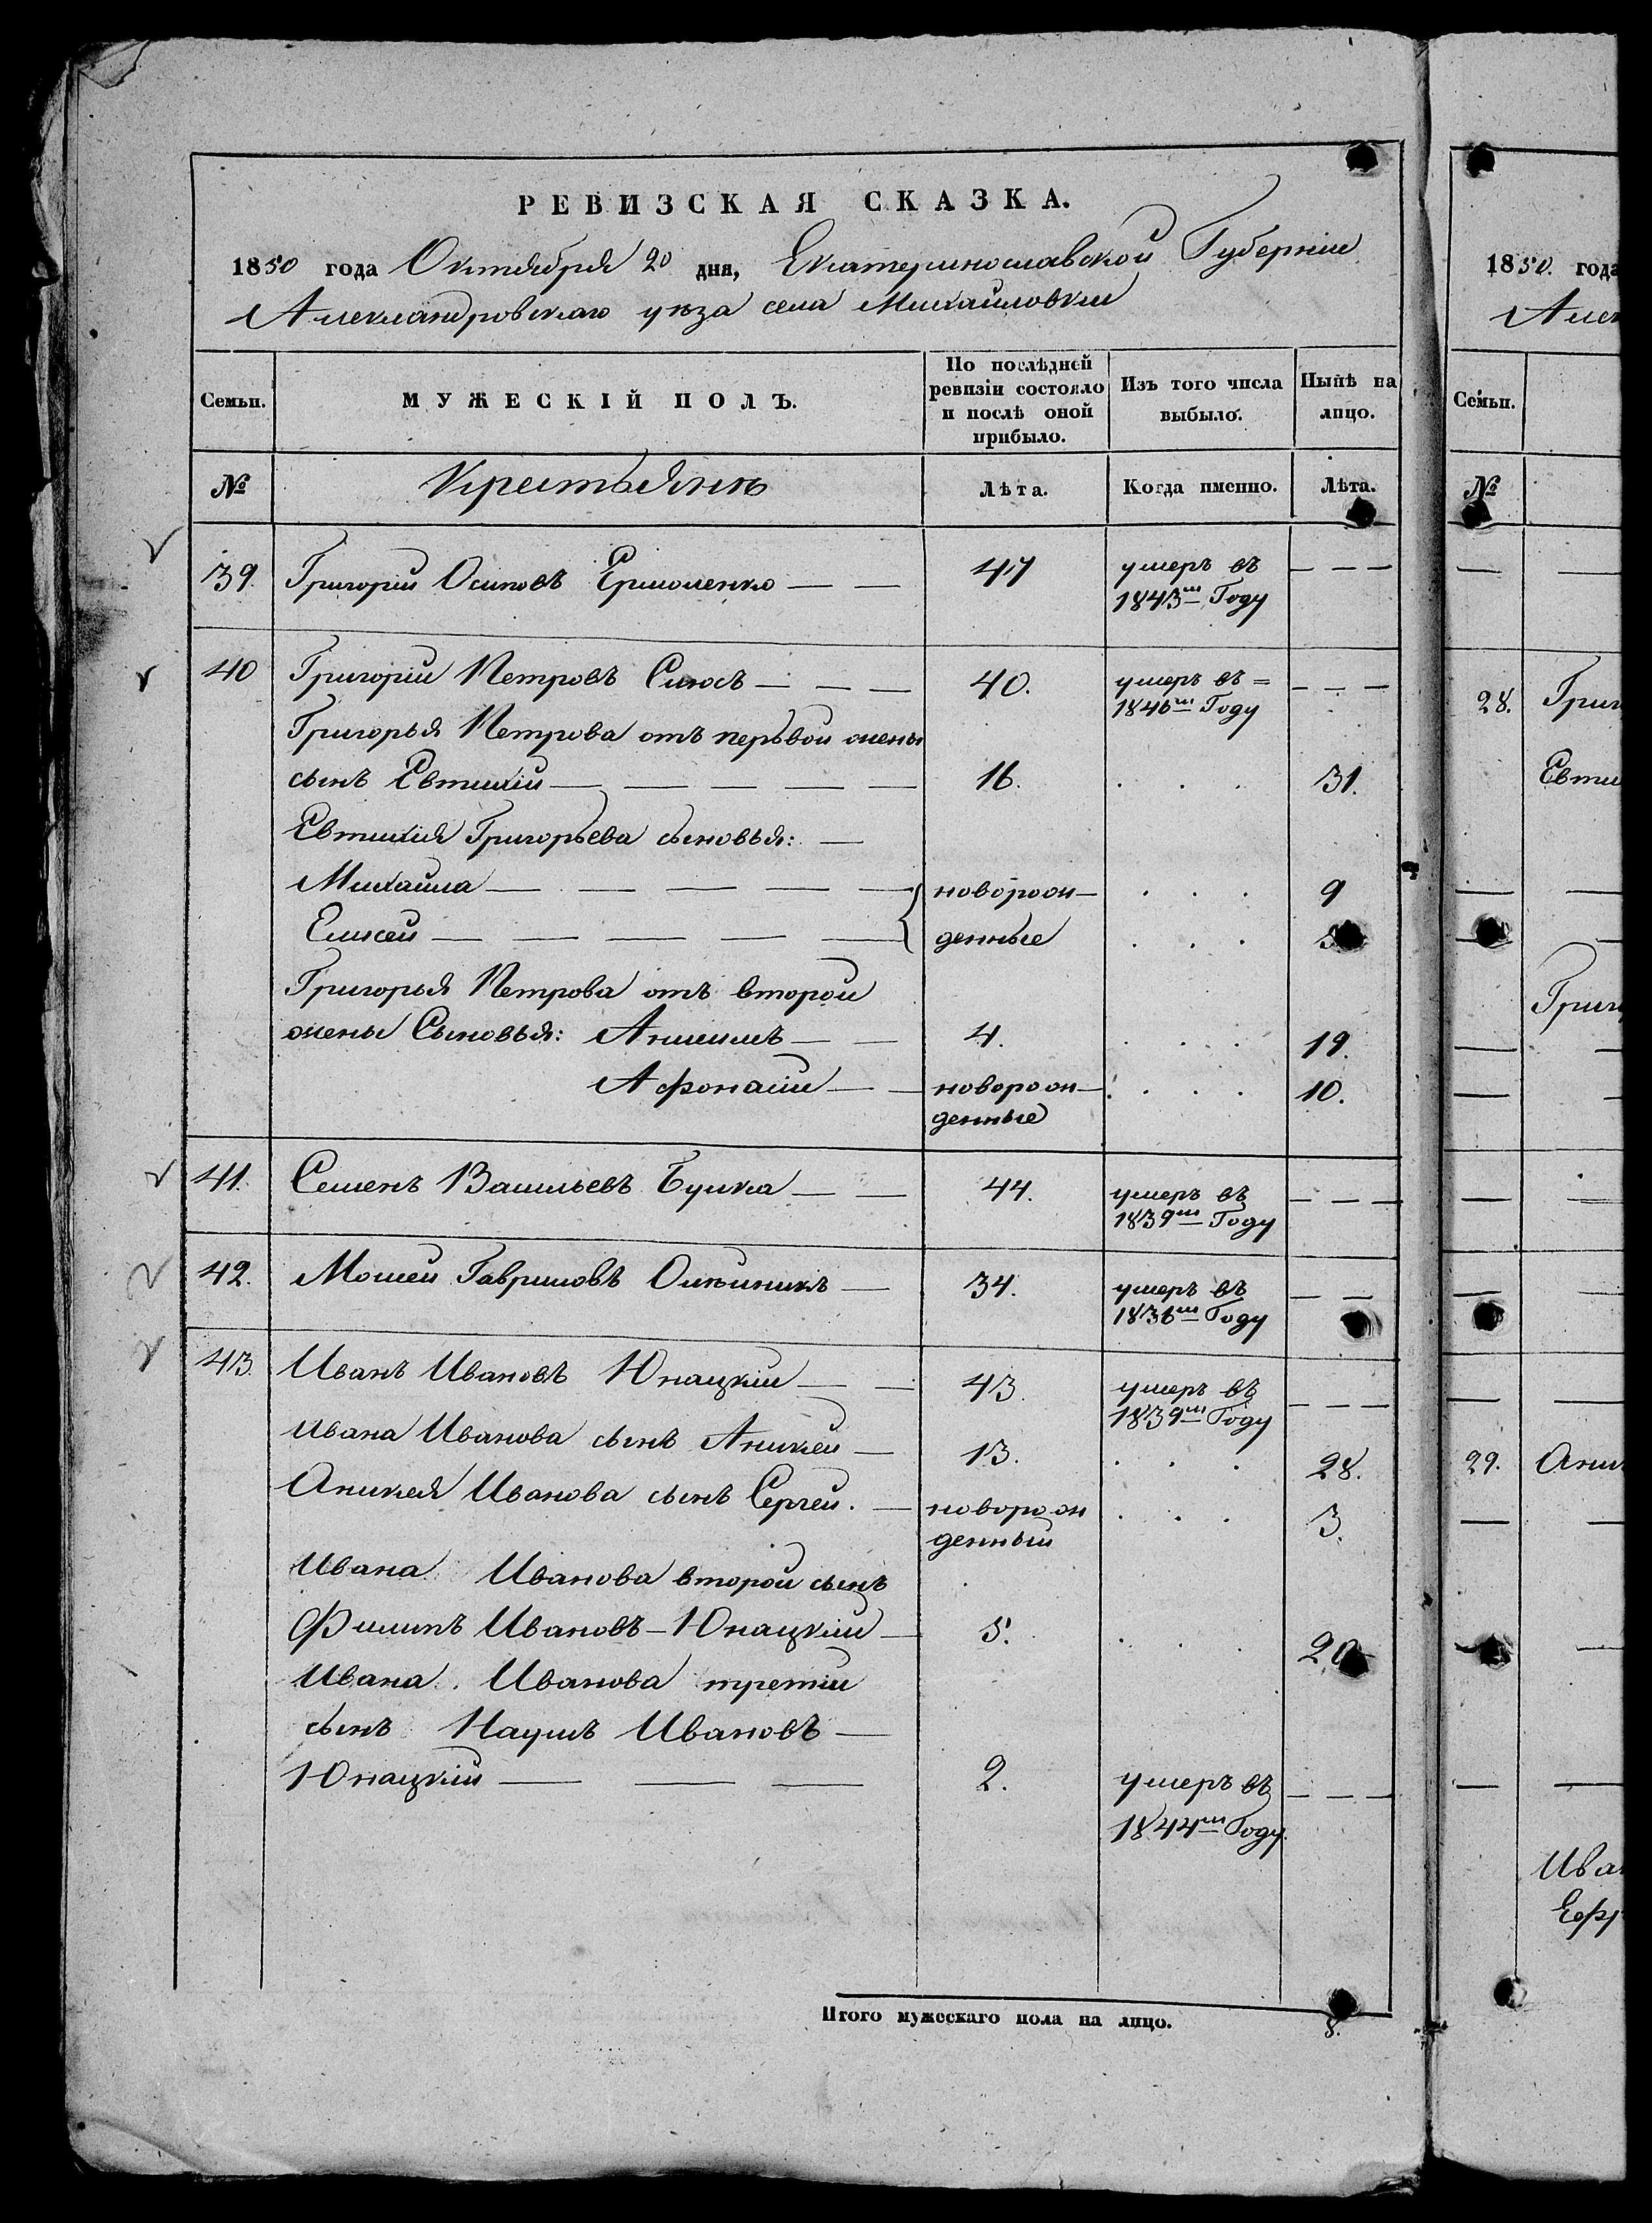 РЕВИЗСКАЯ СКАЗКА.
1850 года Октября 20 дня, Екатеринославской Губернии
Александровскаго уѣзда села Михайловки
Семьи.
МУЖЕСКІЙ ПОЛЪ.
По послѣдней ревизіи состояло и послѣ оной прибыло.
Изъ того числа выбыло.
Нынѣ на лицо.
№
Крестьянъ
Лѣта.
Когда именно.
Лѣта.
39. Григорій Осиповъ Ермоленко — — 47 умеръ въ — — —
1843мъ Году
40 Григорій Петровъ Сиюсъ — — — 40. умеръ въ = — — —
1846мъ Году
Григорья Петрова отъ первой жены
сынъ Евтихій — — — — — 16. . . . 31.
Евтихія Григорьева сыновья: —
Михайла — — — — — новорож— . . . 9
Елисей — — — — — денные . . .
Григорья Петрова отъ второй
жены Сыновья: Анисимъ — — 4. . . . 19.
Афонасій — — новорож— . . . . 10.
денные
41. Семенъ Васильевъ Бушка — — 44. умеръ въ — — —
1839мъ Году
42. Мосей Гавриловъ Олѣйникъ — 34. умеръ въ — —
1836мъ Году
43. Иванъ Ивановъ Юнацкій — — 43. умеръ въ — — —
1839мъ Году
Ивана Иванова сынъ Аникей — 13. . . . 28.
Аникея Иванова сынъ Сергей. — новорож . . . 3.
денный
Ивана Иванова второй сынъ
Филипъ Ивановъ—Юнацкій — 5. . . . 20
Ивана Иванова третій
сынъ Наумъ Ивановъ —
Юнацкій — — — 2. умеръ въ — — —
1844мъ Году.
Итого мужескаго пола на лицо. 8.
1850. года
Алек
Семьи.
№
28. Григ
Евти
Григ
29. Аник
Иван
Ефр